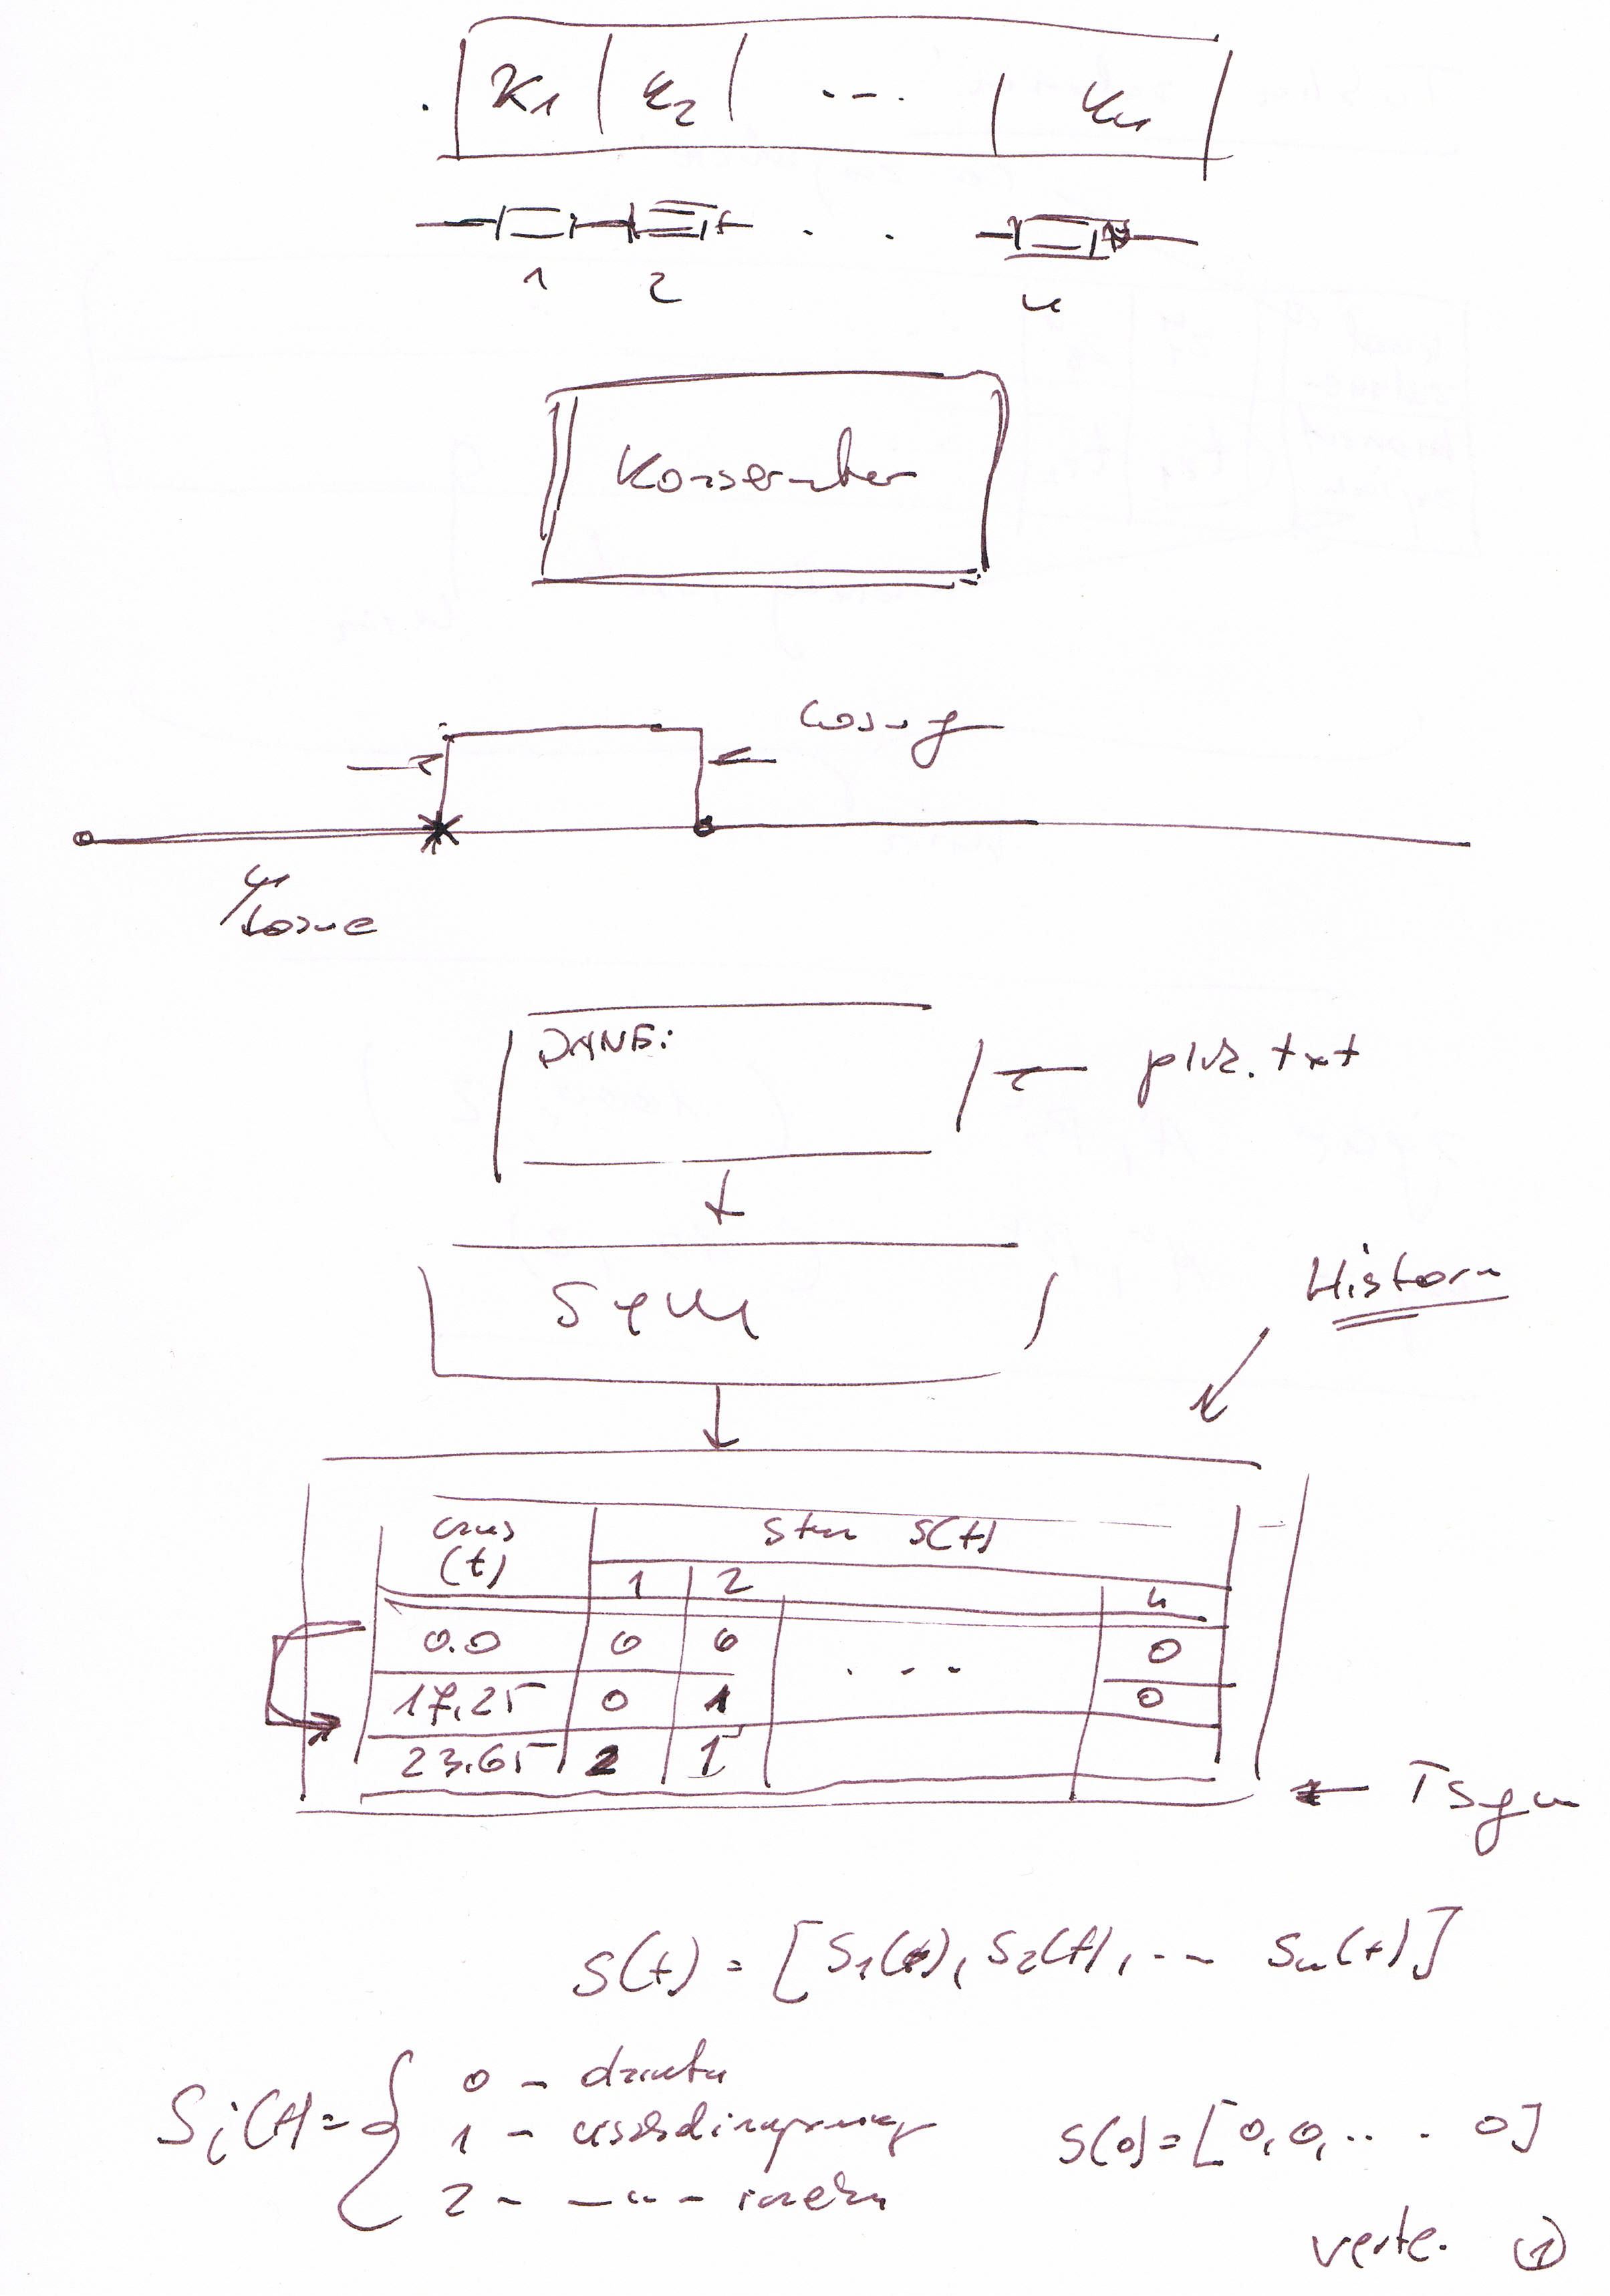 K1 K2 --- Kn
1 2 . . n
Konserwator
losowy
losowe
DANE:
plik.txt
Sym
Historia
czas Stan S(t)
(t)
1 2 n
0.0 0 0 ... 0
17.25 0 1 0
23.65 2 1
Tsym
S(t) = [S1(t), S2(t), -- Sn(t)]
Si(t) = { 0 - działa
1 - uszkodzony
2 - —"— i czeka
S(0) = [0, 0, .. . 0]
verte. 1